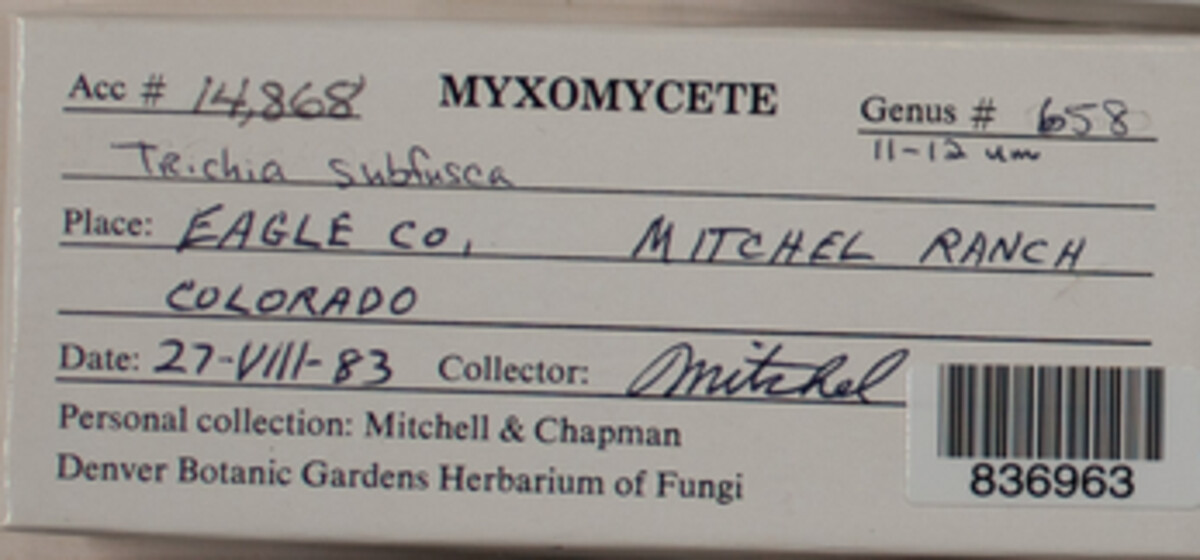 Acc # 14,868 MYXOMYCETE Genus # 658
11-12 um
Trichia subfusca
Place: EAGLE CO, MITCHEL RANCH
COLORADO
Date: 27-VIII-83 Collector: Mitchel
Personal collection: Mitchell & Chapman
Denver Botanic Gardens Herbarium of Fungi
836963